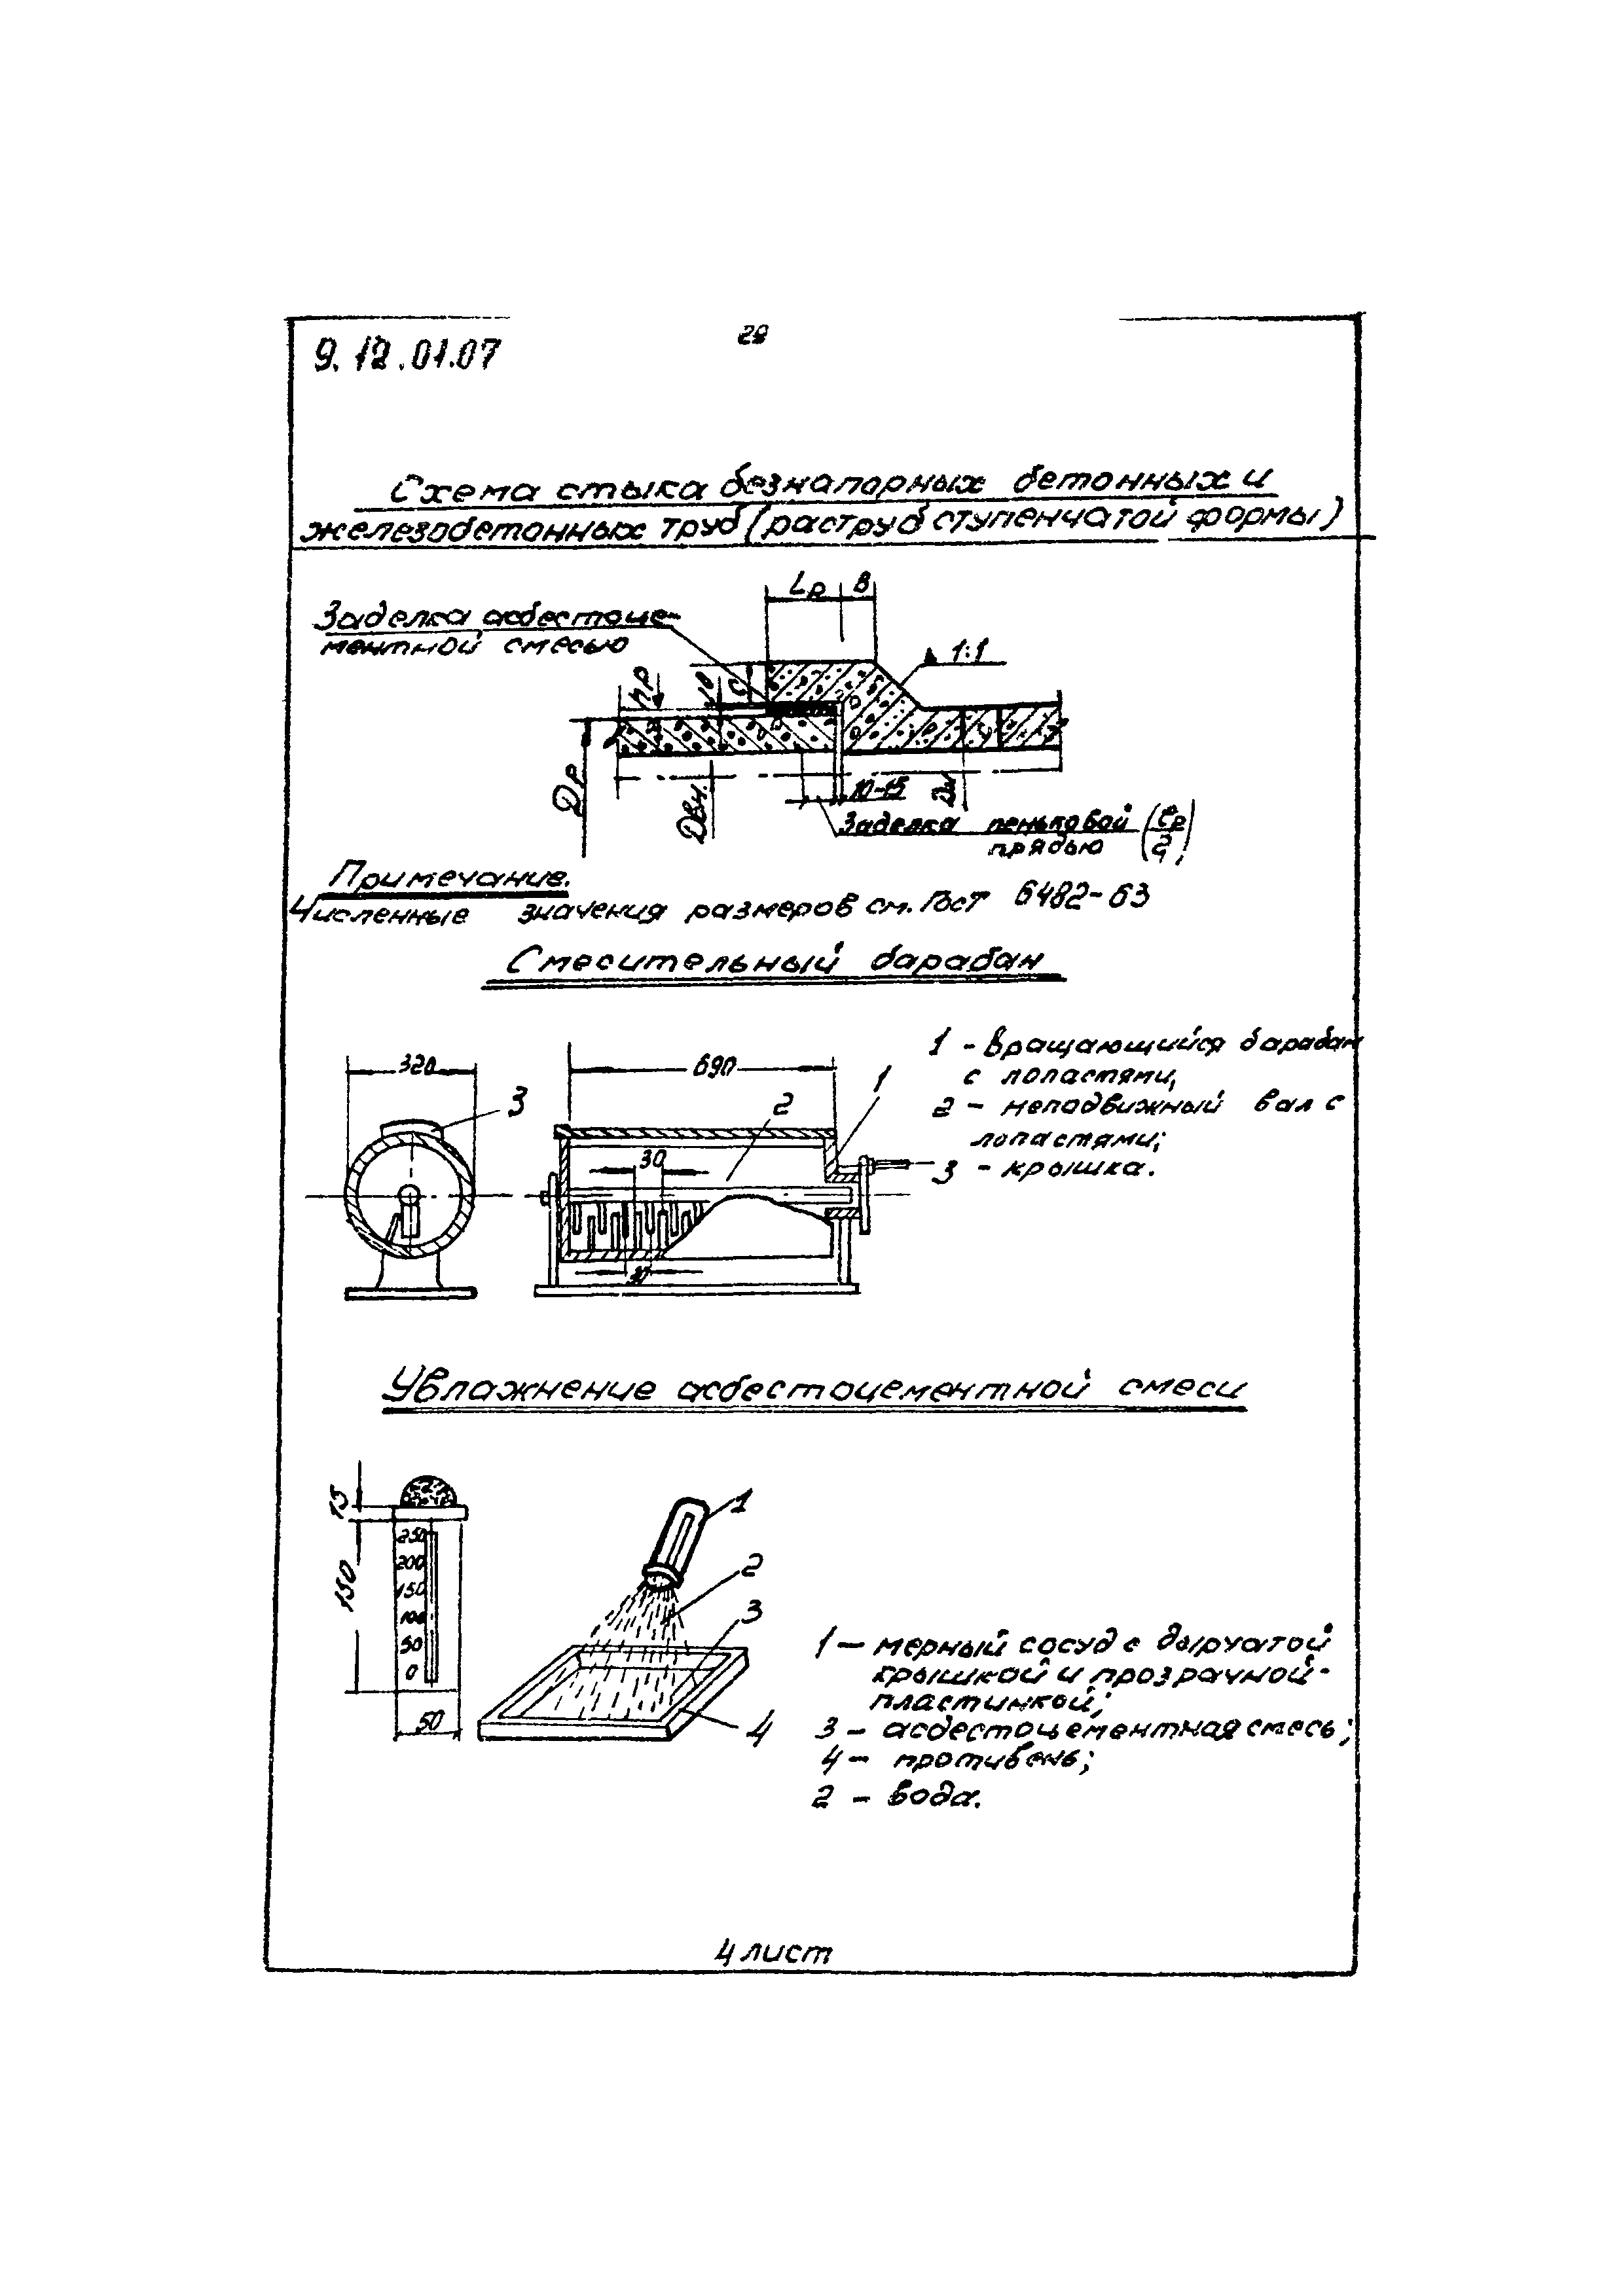 9.12.01.07
Схема стыка безнапорных бетонных и
железобетонных труб (раструб ступенчатой формы)
Lр В
Заделка асбестоце-
ментной смесью
1:1
hр
С
Dр
Dвн.
10-15
Заделка пеньковой
прядью
Примечание.
Численные значения размеров см. Гост 6482-63
Смесительный барабан
1 - вращающийся барабан
с лопастями;
2 - неподвижный вал с
лопастями;
3 - крышка.
320
3
690
2
1
30
30
Увлажнение асбестоцементной смеси
15
150
250
200
150
100
50
0
50
1
2
3
4
1 - мерный сосуд с дырчатой
крышкой и прозрачной
пластинкой;
3 - асбестоцементная смесь;
4 - противень;
2 - вода.
4 лист